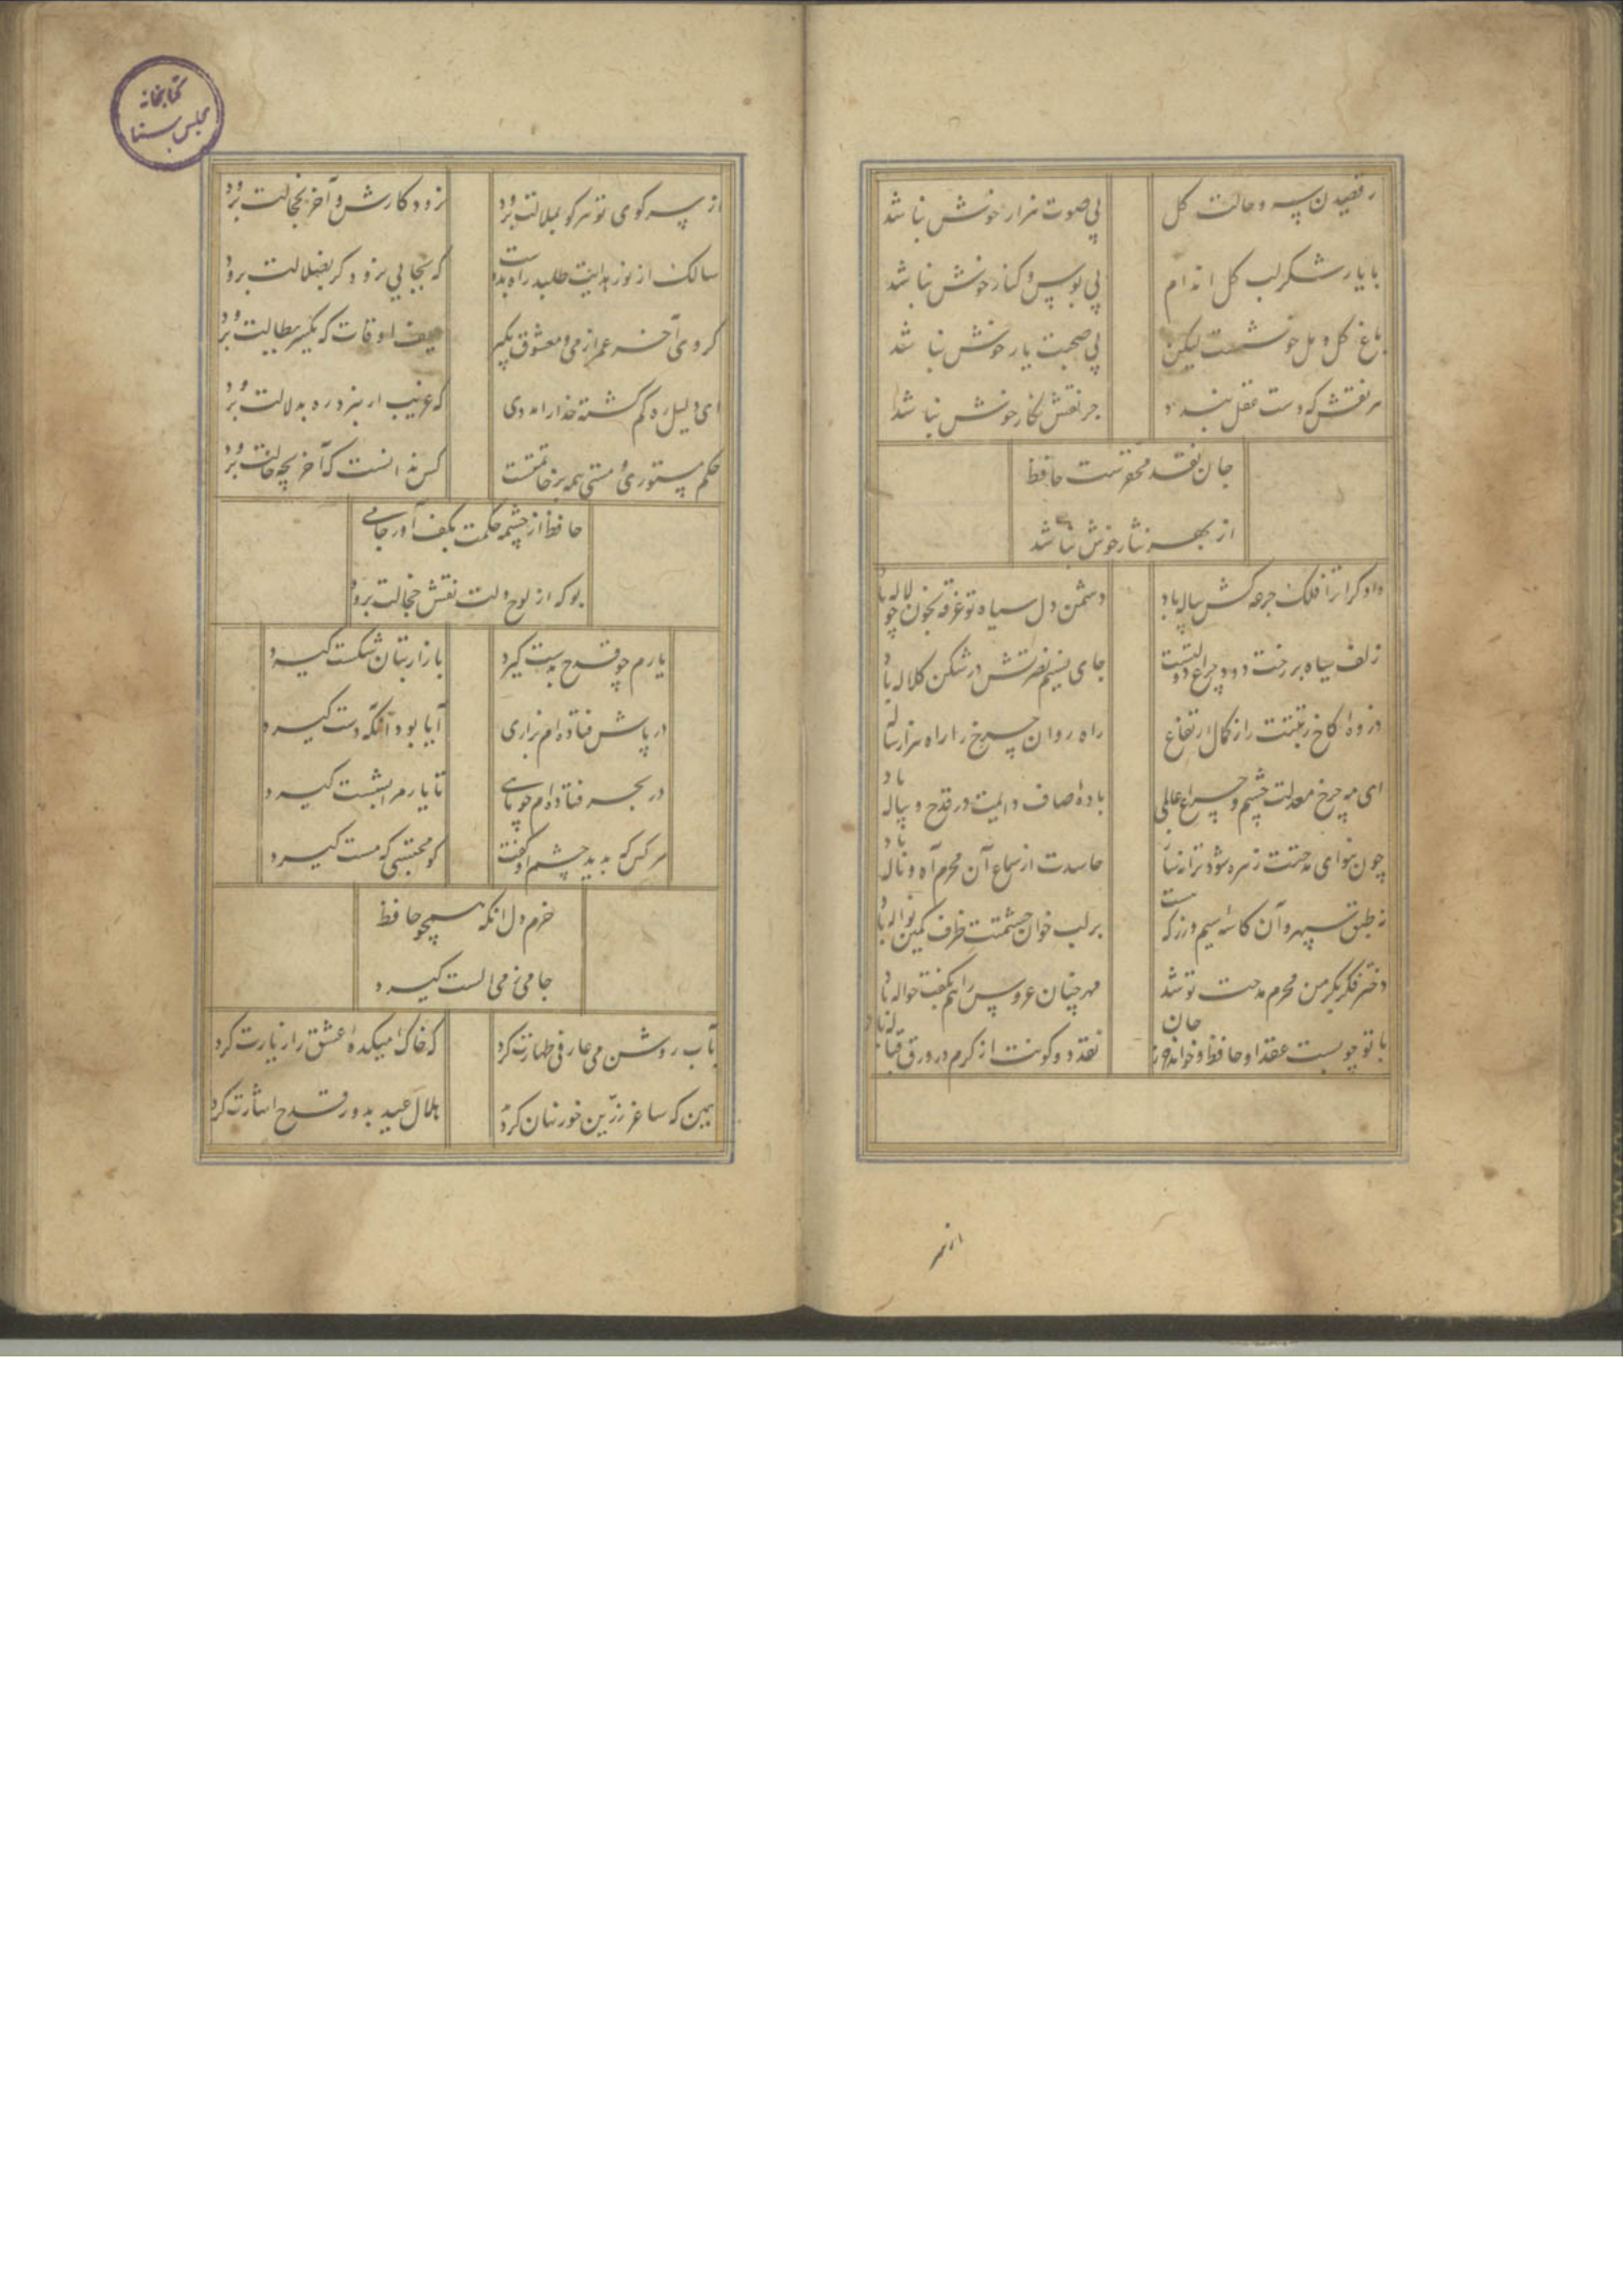 رقصیدن سرو و حالت گل
بی صوت هزار خوش نباشد
با یار شکر لب گل اندام
بی بوس و کنار خوش نباشد
باغ گل و مل خوشست لیکن
بی صحبت یار خوش نباشد
هر نقش که دست عقل بندد
جز نقش نگار خوش نباشد
جان نقد محقرست حافظ
از بهر نثار خوش نباشد
دادگرا ترا فلک جرعه کش پیاله باد
دشمن دل سیاه تو غرقه بخون چو لاله باد
زلف سیاه بر رخت دود چراغ دولتست
جای نسیم نصرتش در شکن کلاله باد
ذروه کاخ رتبتت راز کمال ارتفاع
راه روان چرخ را راه هزار ساله
ای مه چرخ معدلت چشم و چراغ عالمی
باده صاف دایمت در قدح و پیاله باد
چون بنوای مدحتت زهره شود ترانه ساز
حاسدت از سماع آن محرم آه و ناله باد
نه طبق سپهر و آن کاسه سیم و زر که هست
بر لب خوان حشمتت ظرف کمین نواله باد
دختر فکر بکر من محرم مدحت تو شد
مهر چنان عروس را هم بکفت حواله باد
با تو چو بست عقد او حافظ و خواند جان
نقد دو کونت از کرم در ورق قباله باد
از سر
کتابخانه
مجلس سنا
از سر کوی تو هر کو بملالت برود
نرود کارش و آخر بخجالت برود
سالک از نور هدایت طلبد راه بدوست
که بجایی نرود گر بضلالت برود
گروی آخر عمر از می و معشوق بگیر
حیف اوقات که یکسر ببطالت برود
ای دلیل ره گم گشته خدا را مددی
که غریب ار نبرد ره بدلالت برود
حکم مستوری و مستی همه بر خاتمتست
کس ندانست که آخر بچه حالت برود
حافظ از چشمه حکمت بکف آور جامی
بو که از لوح دلت نقش خجالت برود
یارم چو قدح بدست گیرد
بازار بتان شکست گیرد
در پاش فتاده ام بزاری
آیا بود آنکه دست گیرد
در بحر فتاده ام چو ماهی
تا یار مرا بشست گیرد
هر کس که بدید چشم او گفت
کو محتسبی که مست گیرد
خرم دل آنکه همچو حافظ
جامی ز می الست گیرد
بآب روشن می عارفی طهارت کرد
که خاک میکده عشق را زیارت کرد
همین که ساغر زرین خور نهان کردند
هلال عید بدور قدح اشارت کرد